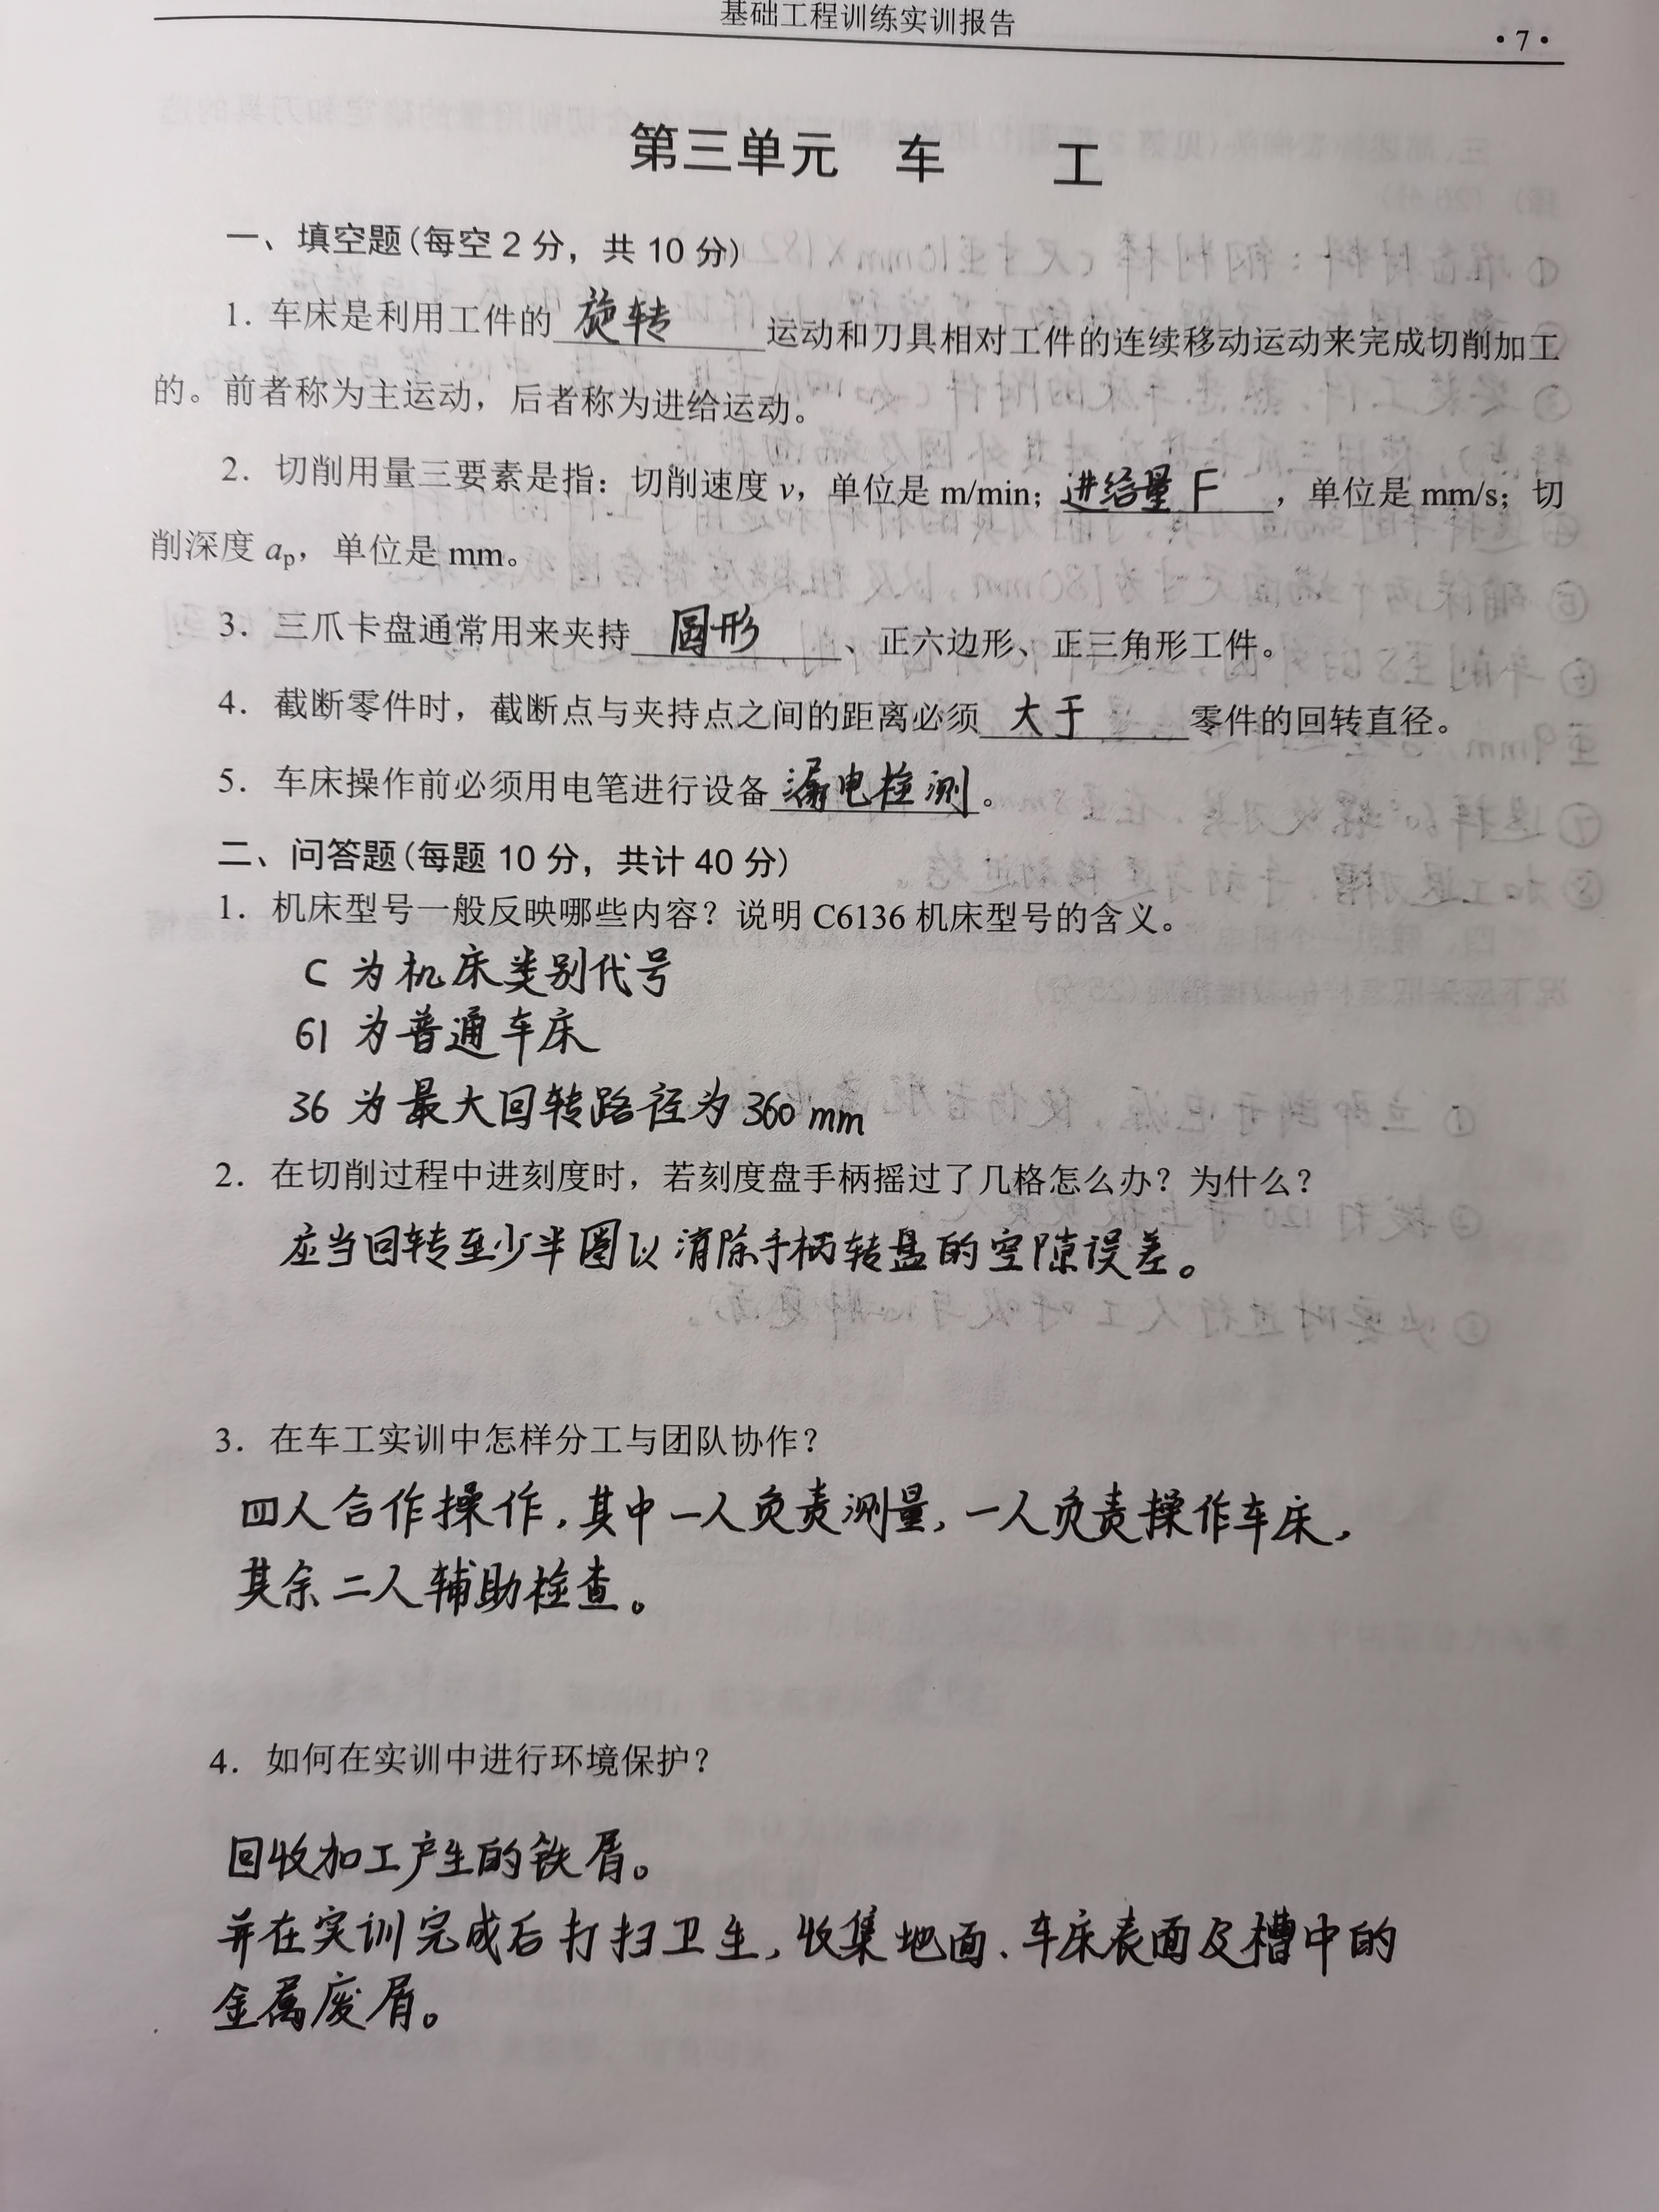 基础工程训练实训报告
·7·
第三单元 车 工
一、填空题(每空2分，共10分)
1. 车床是利用工件的 旋转 运动和刀具相对工件的连续移动运动来完成切削加工
的。前者称为主运动，后者称为进给运动。
2. 切削用量三要素是指：切削速度 v，单位是 m/min；进给量F，单位是 mm/s；切
削深度 ap，单位是 mm。
3. 三爪卡盘通常用来夹持 圆形 、正六边形、正三角形工件。
4. 截断零件时，截断点与夹持点之间的距离必须 大于 零件的回转直径。
5. 车床操作前必须用电笔进行设备 漏电检测。
二、问答题(每题10分，共计40分)
1. 机床型号一般反映哪些内容？说明 C6136 机床型号的含义。
C 为机床类别代号
61 为普通车床
36 为最大回转路径为 360 mm
2. 在切削过程中进刻度时，若刻度盘手柄摇过了几格怎么办？为什么？
应当回转至少半圈以消除手柄转盘的空隙误差。
3. 在车工实训中怎样分工与团队协作？
四人合作操作，其中一人负责测量，一人负责操作车床，
其余二人辅助检查。
4. 如何在实训中进行环境保护？
回收加工产生的铁屑。
并在实训完成后打扫卫生，收集地面、车床表面及槽中的
金属废屑。